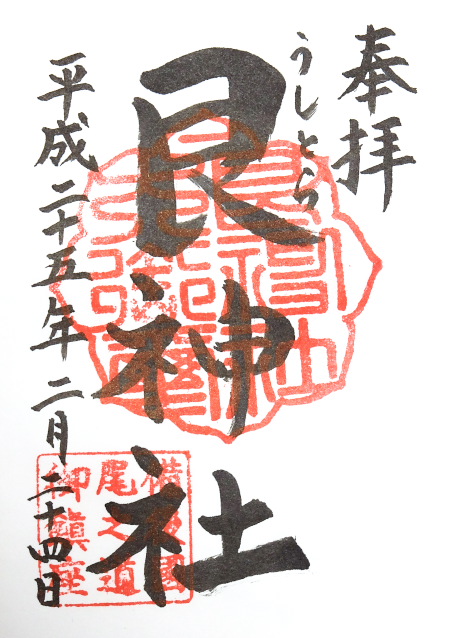 奉拝
うしとら
艮神社
平成二十五年二月二十四日
備後國
尾之道
御鎮座